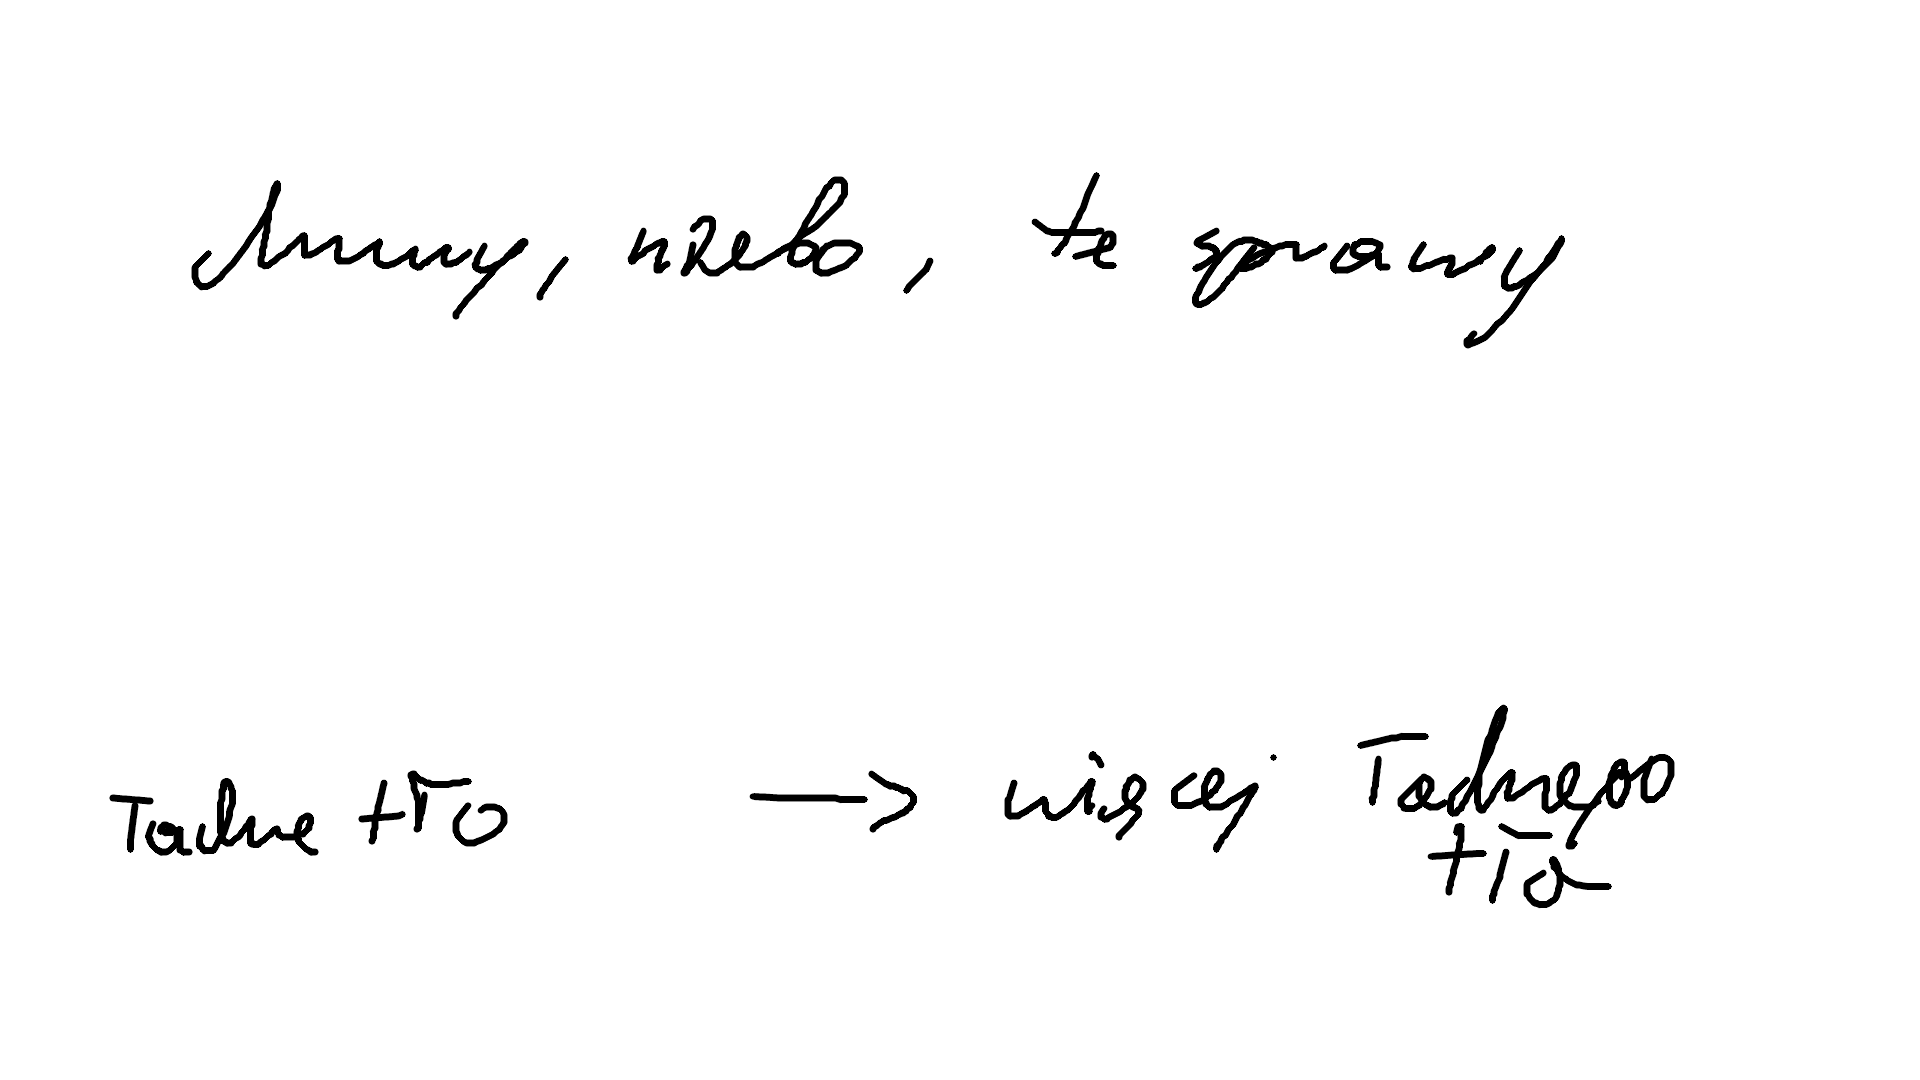 chmury, niebo, te sprawy
ładne tło → więcej ładnego
tła